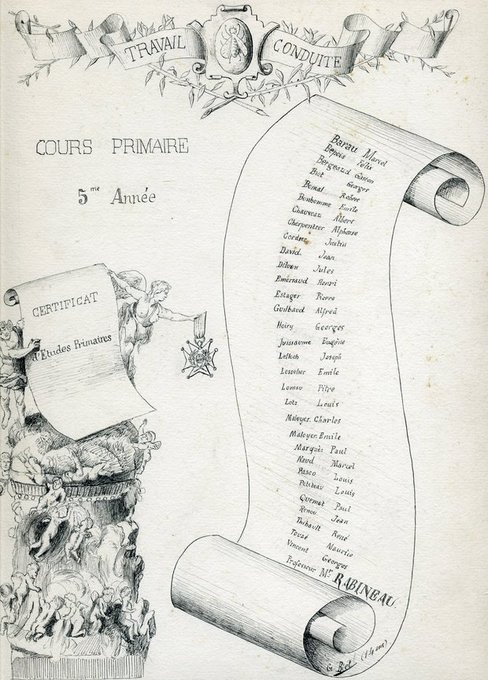 TRAVAIL
CONDUITE
COURS PRIMAIRE
5me Année
CERTIFICAT
d'Études Primaires
Barau Marcel
Félix
Bergeaud Gaston
Biot
Bonnet
Bonhomme Emile
Chauveau Albert
Charpentier Alphonse
Justin
David Jean
Jules
Emériaud Henri
Estager Pierre
Guilbaud Alfred
Hoiry Georges
Juissaume Eugène
Joseph
Lescelier Emile
Pitre
Lotz Louis
Maloyer Charles
Maloyer Emile
Marquès Paul
Naud Marcel
Pasco Louis
Petiteau Louis
Quernet Paul
Renou Jean
Thibault René
Maurice
Vincent Georges
Professeur Mr RABINEAU
(14 ans)